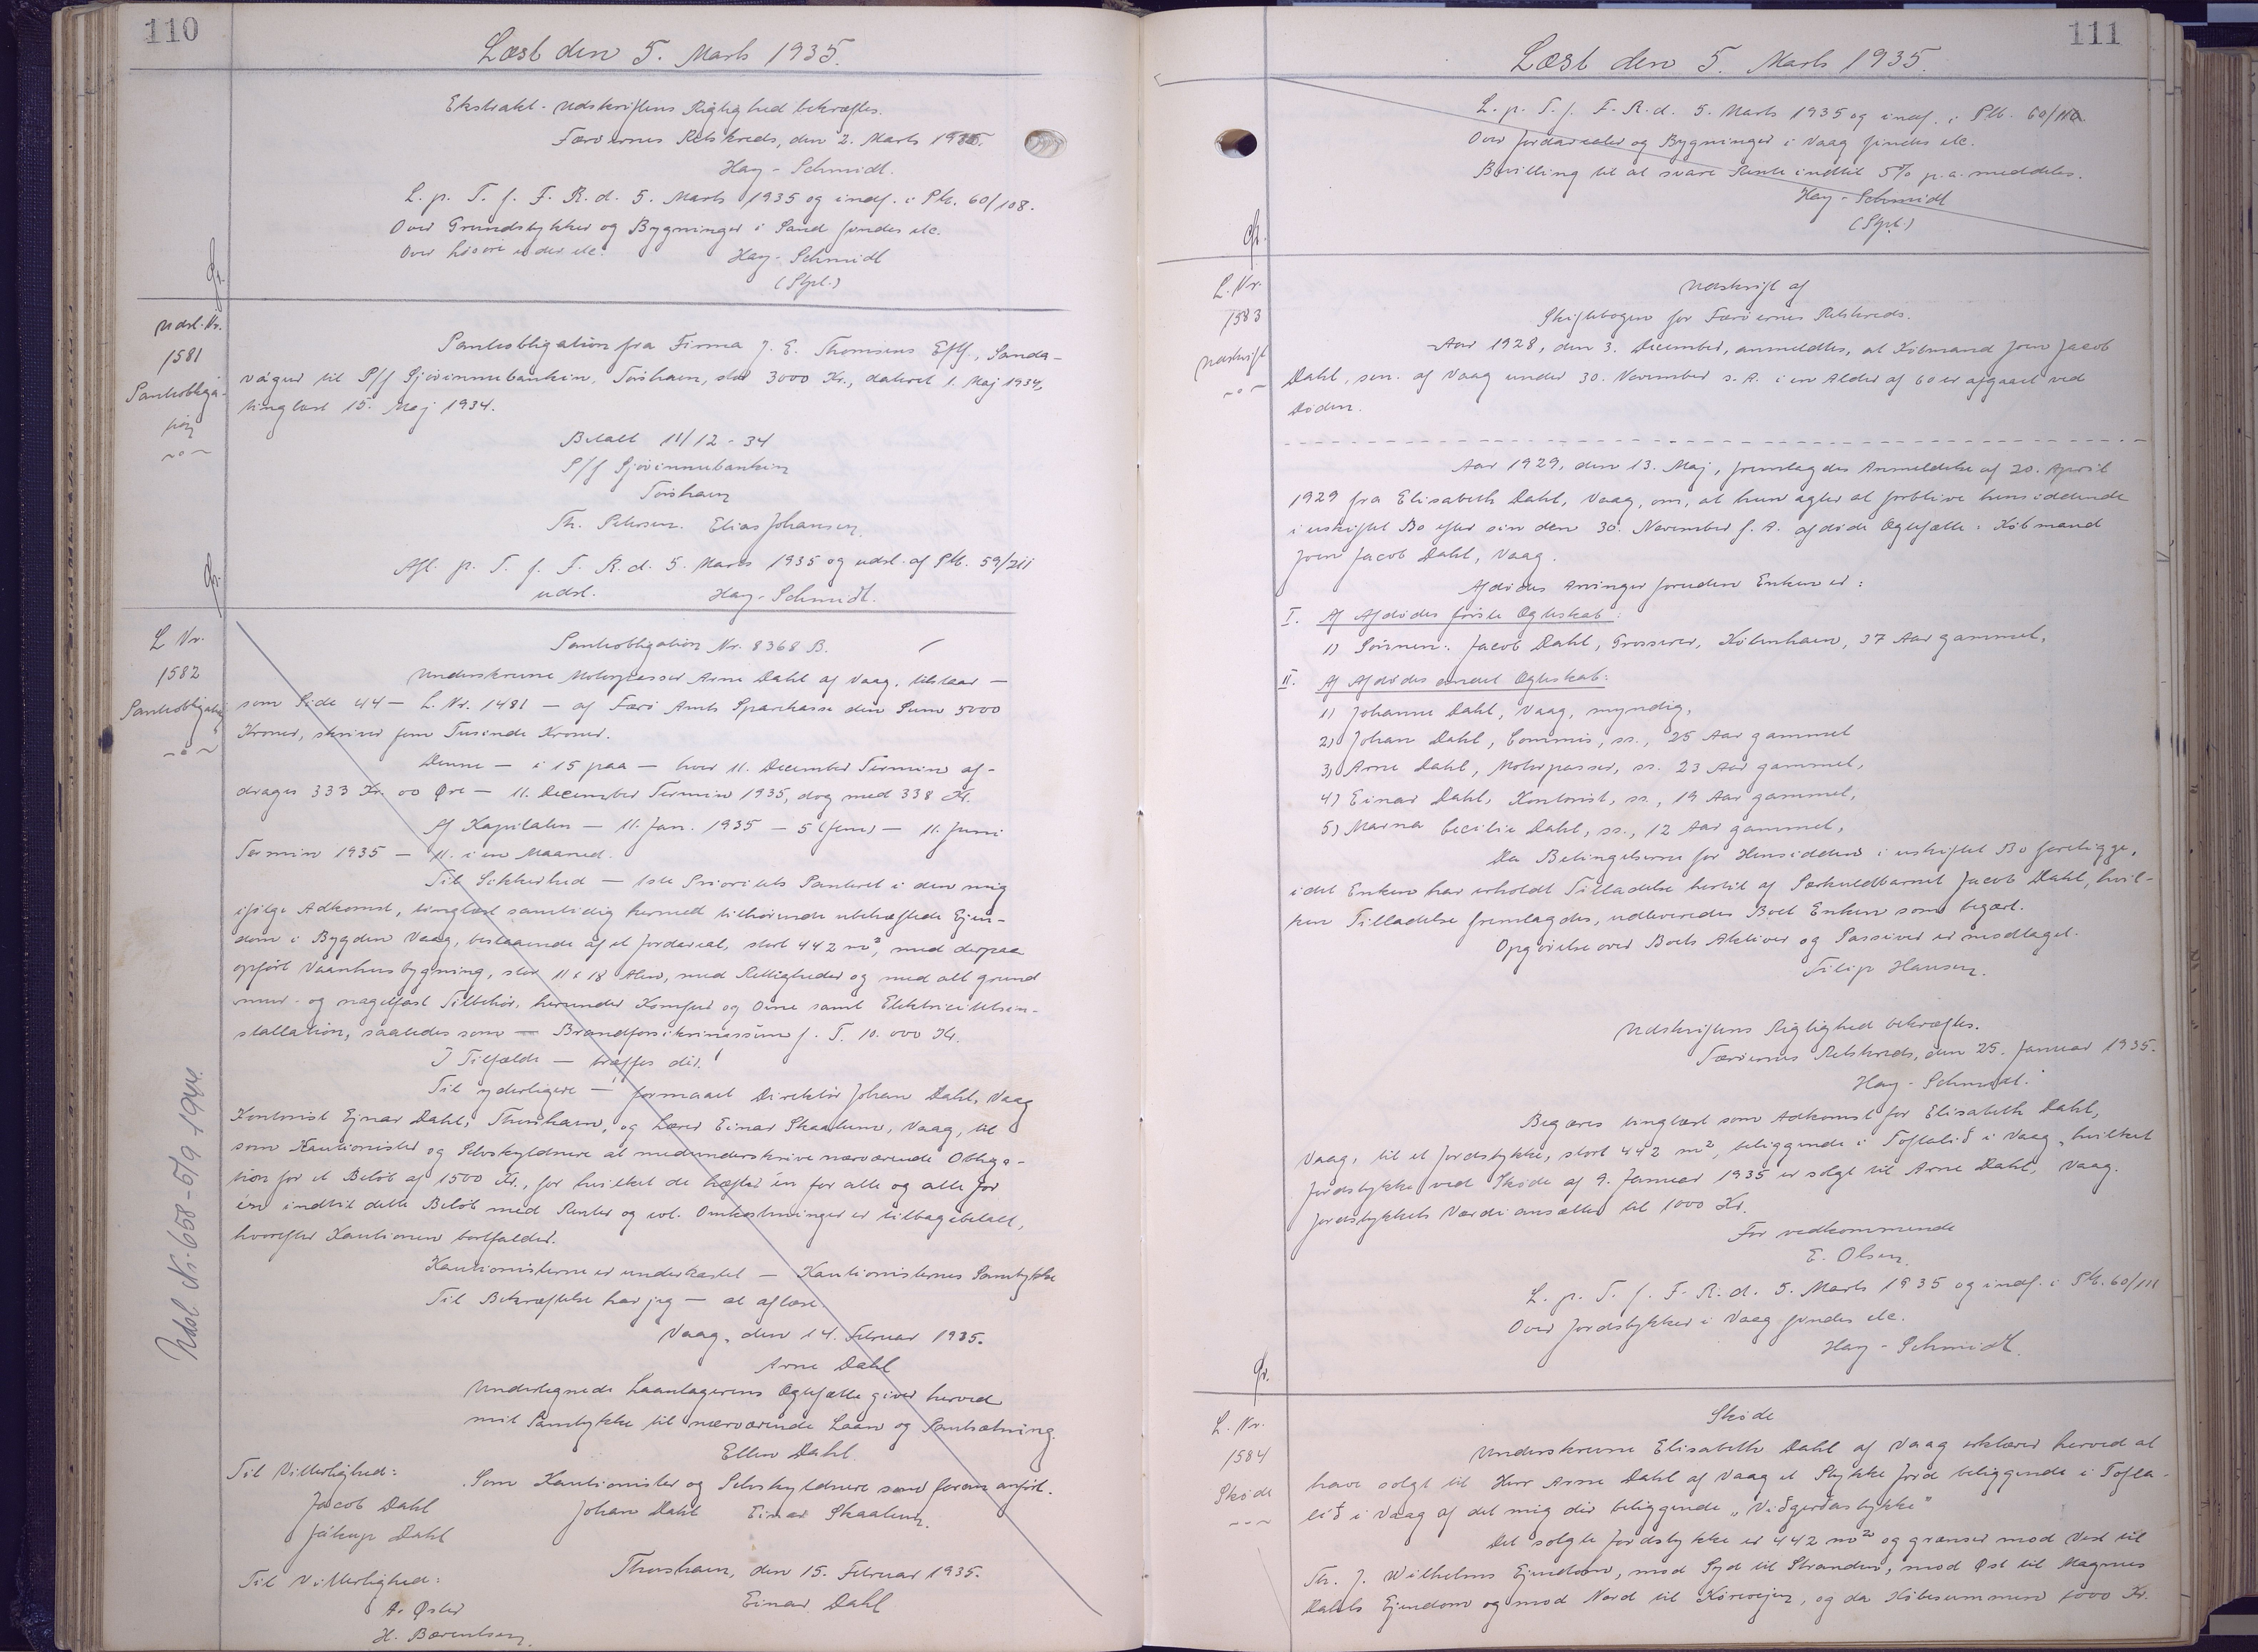 110
Læst den 5. Marts 1935.
Ekstrakt-Udskriftens Rigtighed bekræftes.
Færøernes Retskreds, den 2. Marts 1935.
Hay-Schmidt.
L. p. T. f. F. R. d. 5. Marts 1935 og indf. i Pb. 60/108.
Over Grundstykker og Bygninger i Sand findes etc.
Over husere
Hay-Schmidt
(Stpl.)
Udsl. Nr.
1581
Pantobliga-
tion
Pantobligation fra Firma J. E. Thomsens Eftf., Sanda-
vágur til P/f Sjóvinnubankin, Tórshavn, stor 3000 Kr., dateret 1. Maj 1934,
tinglæst 15. Maj 1934.
Betalt 11/12-34
P/f Sjóvinnubankin
Tórshavn
Th. Petersen. Elias Johansen.
Afl. p. T. f. F. R. d. 5. Marts 1935 og udsl. af Pb. 59/211
udsl. Hay-Schmidt.
L Nr.
1582
Pantobligation
Pantobligation Nr. 8368 B.
Underskrevne Motorpasser Arne Dahl af Vaag, tilstaar —
som Side 44 — L. Nr. 1481 — af Færø Amts Sparekasse den Sum 5000
Kroner, skriver fem Tusinde Kroner.
Denne — i 15 paa — hver 11. December Termin af-
drages 333 Kr. 00 Øre — 11. December Termin 1935, dog med 338 Kr.
Af Kapitalen — 11. Jan. 1935 — 5 (fem) — 11. Juni
Termin 1935 — 11. i en Maaned.
Til Sikkerhed — 1ste Prioritets Panteret i den mig
ifølge Adkomst, tinglæst samtidig hermed tilhørende ubehæftede Ejen-
dom i Bygden Vaag, bestaaende af et Jordareal, stort 442 m², med derpaa
opført Vaanhusbygning, stor 11 x 18 Alen, med Rettigheder og med alt grund
mur- og nagelfast Tilbehør, herunder Komfur og Ovne samt Elektricitetsin-
stallation, saaledes som — Brandforsikringssum p. T. 10.000 Kr.
I Tilfælde — træffes der.
Til yderligere — formaaet Direktør Johan Dahl, Vaag
Kontorist Ejnar Dahl, Thorshavn, og Lærer Einar Skaalum, Vaag, til
som Kautionister og Selvskyldnere at medunderskrive nærværende Obliga-
tion for et Beløb af 1500 Kr., for hvilket de hæfter en for alle og alle for
en indtil dette Beløb med Renter og evt. Omkostninger er tilbagebetalt,
hvorefter Kautionen bortfalder.
Kautionisterne er underkastet — Kautionisternes Samtykke
Til Bekræftelse har jeg — at aflæse.
Vaag, den 14. Februar 1935.
Arne Dahl
Undertegnede Laantagerens Ægtefælle giver herved
mit Samtykke til nærværende Laan og Pantsætning.
Ellen Dahl.
Til Vitterlighed:
Jacob Dahl
Jákup Dahl
Som Kautionister og Selvskyldnere som foran anført.
Johan Dahl Einar Skaalum.
Thorshavn, den 15. Februar 1935.
Einar Dahl
Til Vitterlighed:
A. Øster
H. Bærentsen.
Udsl. Nr. 658 - 5/9 - 1944.
111
Læst den 5. Marts 1935.
L. p. T. f. F. R. d. 5. Marts 1935 og indf. i Pb. 60/110.
Over Jordarealer og Bygninger i Vaag findes etc.
Bevilling til at svare Rente indtil 5% p. a. meddeles.
Hay-Schmidt
(Stpl.)
L. Nr.
1583
Udskrift
Udskrift af
Skiftebogen for Færøernes Retskreds.
Aar 1928, den 3. December, anmeldtes, at Købmand Joen Jacob
Dahl, sen. af Vaag under 30. November s. A. i en Alder af 60 er afgaaet ved
Døden.
Aar 1929, den 13. Maj, fremlagdes Anmeldelse af 20. April
1929 fra Elisabeth Dahl, Vaag, om, at hun agter at forblive hensiddende
i uskiftet Bo efter sin den 30. November f. A. afdøde Ægtefælle: Købmand
Joen Jacob Dahl, Vaag.
Afdødes Arvinger foruden Enken er:
I. Af Afdødes første Ægteskab:
1) Sønnen: Jacob Dahl, Grosserer, København, 37 Aar gammel,
II. Af Afdødes andet Ægteskab:
1) Johanne Dahl, Vaag, myndig,
2) Johan Dahl, Commis, ss., 25 Aar gammel
3) Arne Dahl, Motorpasser, ss. 23 Aar gammel,
4) Einar Dahl, Kontorist, ss., 19 Aar gammel,
5) Marna Cecilie Dahl, ss., 12 Aar gammel,
Da Betingelserne for Hensidden i uskiftet Bo foreligge,
idet Enken har erholdt Tilladelse hertil af Særkuldbarnet Jacob Dahl, hvil-
ken Tilladelse fremlagdes, udleveredes Boet Enken som begært.
Opgørelse over Boets Aktiver og Passiver er modtaget.
Filip Hansen.
Udskriftens Rigtighed bekræftes.
Færøernes Retskreds, den 25. Januar 1935.
Hay-Schmidt.
Begæres tinglæst som Adkomst for Elisabeth Dahl,
Vaag, til et Jordstykke, stort 442 m², beliggende i Toftalið i Vaag, hvilket
Jordstykke ved Skøde af 9. Januar 1935 er solgt til Arne Dahl, Vaag.
Jordstykkets Værdi ansættes til 1000 Kr.
For vedkommende
E. Olsen.
L. p. T. f. F. R. d. 5. Marts 1935 og indf. i Pb. 60/111
Over Jordstykker i Vaag findes etc.
Hay-Schmidt.
L. Nr.
1584
Skøde
Skøde
Underskrevne Elisabeth Dahl af Vaag erklærer herved at
have solgt til Herr Arne Dahl af Vaag et Stykke Jord beliggende i Tofta-
lið i Vaag af det mig der beliggende „Viðgerðastykke"
Det solgte Jordstykke er 442 m² og grænser mod Vest til
Th. J. Wilhelms Ejendom, mod Syd til Stranden, mod Øst til Magnus
Dahls Ejendom og mod Nord til Kørevejen, og da Købesummen 1000 Kr.